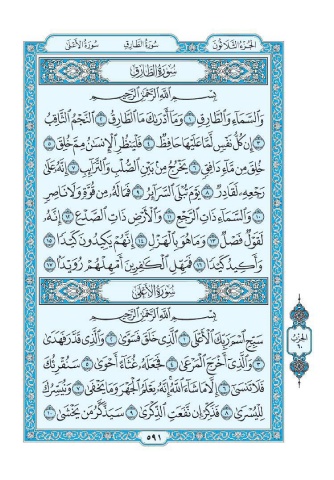 الجزء الثلاثون سورة الطارق سورة الأعلى
سورة الطارق
بسم الله الرحمن الرحيم
والسماء والطارق ١ وما أدراك ما الطارق ٢ النجم الثاقب
٣ إن كل نفس لما عليها حافظ ٤ فلينظر الإنسان مم خلق ٥
خلق من ماء دافق ٦ يخرج من بين الصلب والترائب ٧ إنه على
رجعه لقادر ٨ يوم تبلى السرائر ٩ فما له من قوة ولا ناصر
١٠ والسماء ذات الرجع ١١ والأرض ذات الصدع ١٢ إنه
لقول فصل ١٣ وما هو بالهزل ١٤ إنهم يكيدون كيدا ١٥
وأكيد كيدا ١٦ فمهل الكافرين أمهلهم رويدا ١٧
سورة الأعلى
بسم الله الرحمن الرحيم
سبح اسم ربك الأعلى ١ الذي خلق فسوى ٢ والذي قدر فهدى
٣ والذي أخرج المرعى ٤ فجعله غثاء أحوى ٥ سنقرئك
فلا تنسى ٦ إلا ما شاء الله إنه يعلم الجهر وما يخفى ٧ ونيسرك
لليسرى ٨ فذكر إن نفعت الذكرى ٩ سيذكر من يخشى ١٠
٥٩١
الحزب
٦٠